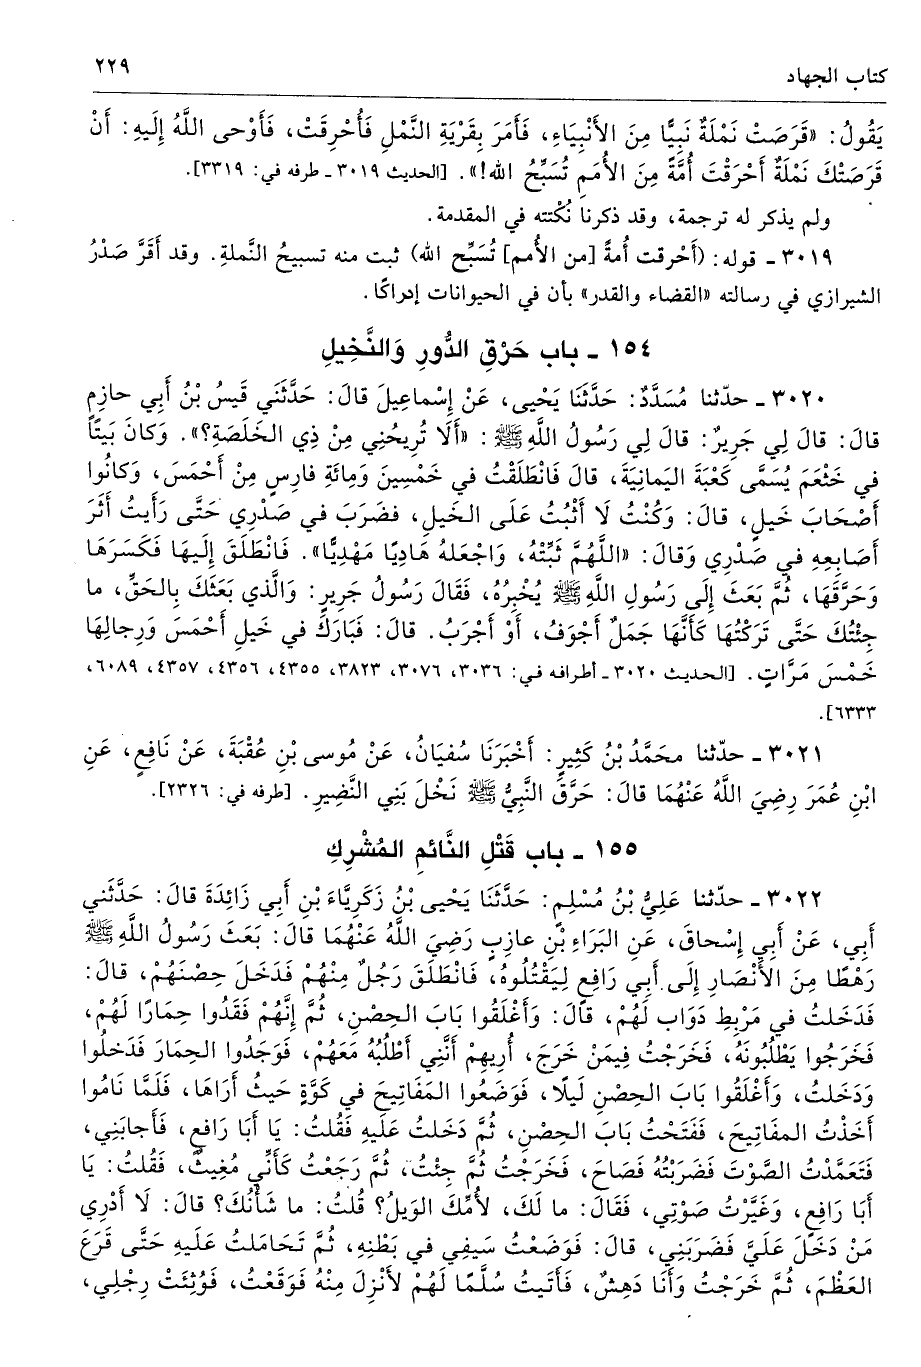 كتاب الجهاد
٢٢٩
يَقُولُ: «قَرَصَتْ نَمْلَةٌ نَبِيًّا مِنَ الأَنْبِيَاءِ، فَأَمَرَ بِقَرْيَةِ النَّمْلِ فَأُحْرِقَتْ، فَأَوْحى اللَّهُ إِلَيهِ: أَنْ
قَرَصَتْكَ نَمْلَةٌ أَحْرَقْتَ أُمَّةً مِنَ الأُمَمِ تُسَبِّحُ الله!». [الحديث ٣٠١٩ ـ طرفه في: ٣٣١٩].
ولم يذكر له ترجمة، وقد ذكرنا نُكْتته في المقدمة.
٣٠١٩ ـ قوله: (أَحْرقت أُمةً [من الأُمم] تُسَبِّح الله) ثبت منه تسبيحُ النَّملةِ. وقد أَقَرَّ صَدْرُ
الشيرازي في رسالته «القضاء والقدر» بأن في الحيوانات إدراكًا.
١٥٤ ـ باب حَرْقِ الدُّورِ وَالنَّخِيلِ
٣٠٢٠ ـ حدّثنا مُسَدَّدٌ: حَدَّثَنَا يَحْيى، عَنْ إِسْماعِيلَ قالَ: حَدَّثَنَي قَيسُ بْنُ أَبِي حازِمٍ
قالَ: قالَ لِي جَرِيرٌ: قالَ لِي رَسُولُ اللَّهِ ﷺ: «أَلَا تُرِيحُنِي مِنْ ذِي الخَلَصَةِ؟». وَكانَ بَيتًا
في خَثْعَمَ يُسَمَّى كَعْبَةَ اليَمانِيَةَ، قالَ فَانْطَلَقْتُ في خَمْسِينَ وَمِائَةِ فارِسٍ مِنْ أَحْمَسَ، وَكانُوا
أَصْحَابَ خَيلٍ، قالَ: وَكُنْتُ لَا أَثْبُتُ عَلَى الخَيلِ، فَضَرَبَ في صَدْرِي حَتَّى رَأَيتُ أَثَرَ
أَصَابِعِهِ في صَدْرِي وَقالَ: «اللَّهُمَّ ثَبِّتْهُ، وَاجْعَلهُ هَادِيًا مَهْدِيًّا». فَانْطَلَقَ إِلَيهَا فَكَسَرَهَا
وَحَرَّقَهَا، ثُمَّ بَعَثَ إِلَى رَسُولِ اللَّهِ ﷺ يُخْبِرُهُ، فَقَالَ رَسُولُ جَرِيرٍ: وَالَّذِي بَعَثَكَ بِالحَقِّ، ما
جِئْتُكَ حَتَّى تَرَكْتُهَا كَأَنَّهَا جَمَلٌ أَجْوَفُ، أَوْ أَجْرَبُ. قالَ: فَبَارَكَ في خَيلِ أَحْمَسَ وَرِجالِهَا
خَمْسَ مَرَّاتٍ. [الحديث ٣٠٢٠ ـ أطرافه في: ٣٠٣٦، ٣٠٧٦، ٣٨٢٣، ٤٣٥٥، ٤٣٥٦، ٤٣٥٧، ٦٠٨٩،
٦٣٣٣].
٣٠٢١ ـ حدّثنا محَمَّدُ بْنُ كَثِيرٍ: أَخْبَرَنَا سُفيَانُ، عَنْ مُوسى بْنِ عُقْبَةَ، عَنْ نَافِعٍ، عَنِ
ابْنِ عُمَرَ رِضِيَ اللَّهُ عَنْهُمَا قالَ: حَرَّقَ النَّبِيُّ ﷺ نَخْلَ بَنِي النَّضِيرِ. [طرفه في: ٢٣٢٦].
١٥٥ ـ باب قَتْلِ النَّائمِ المُشْرِكِ
٣٠٢٢ ـ حدّثنا عَلِيُّ بْنُ مُسْلِمٍ: حَدَّثَنَا يَحْيى بْنُ زَكَرِيَّاءَ بْنِ أَبِي زَائِدَةَ قالَ: حَدَّثَني
أَبِي، عَنْ أَبِي إِسْحاقَ، عَنِ البَرَاءِ بْنِ عازِبٍ رَضِيَ اللَّهُ عَنْهُمَا قالَ: بَعَثَ رَسُولُ اللَّهِ ﷺ
رَهْطًا مِنَ الأَنْصَارِ إِلَى أَبِي رَافِعٍ لِيَقْتُلُوهُ، فَانْطَلَقَ رَجُلٌ مِنْهُمْ فَدَخَلَ حِصْنَهُمْ، قالَ:
فَدَخَلتُ في مَرْبِطِ دَوَابٍ لَهُمْ، قالَ: وَأَغْلَقُوا بَابَ الحِصْنِ، ثُمَّ إِنَّهُمْ فَقَدُوا حِمارًا لَهُمْ،
فَخَرَجُوا يَطْلُبُونَهُ، فَخَرَجْتُ فِيمَنْ خَرَجَ، أُرِيهِمْ أَنَّنِي أَطْلُبُهُ مَعَهُمْ، فَوَجَدُوا الحِمَارَ فَدَخلُوا
وَدَخَلتُ، وَأَغْلَقُوا بَابَ الحِصْنِ لَيلًا، فَوَضَعُوا المَفَاتِيحَ في كَوَّةٍ حَيثُ أَرَاهَا، فَلَمَّا نَامُوا
أَخَذْتُ المفَاتِيحَ، فَفَتَحْتُ بَابَ الحِصْنِ، ثُمَّ دَخَلتُ عَلَيهِ فَقُلتُ: يَا أَبَا رَافِعٍ، فَأَجابَنِي،
فَتَعَمَّدْتُ الصَّوْتَ فَضَرَبْتُهُ فَصَاحَ، فَخَرَجْتُ ثُمَّ جِئْتُ، ثُمَّ رَجَعْتُ كَأَنِّي مُغِيثٌ، فَقُلتُ: يَا
أَبَا رَافِعٍ، وَغَيَّرْتُ صَوْتِي، فَقَالَ: ما لَكَ، لأُمِّكَ الوَيلُ؟ قُلتُ: ما شَأْنُكَ؟ قالَ: لَا أَدْرِي
مَنْ دَخَلَ عَلَيَّ فَضَرَبَنِي، قالَ: فَوَضَعْتُ سَيفِي في بَطْنِهِ، ثُمَّ تَحَامَلتُ عَلَيهِ حَتَّى قَرَعَ
العَظْمَ، ثُمَّ خَرَجْتُ وَأَنَا دَهِشٌ، فَأَتَيتُ سُلَّمًا لَهُمْ لأَنْزِلَ مِنْهُ فَوَقَعْتُ، فَوُثِئَتْ رِجْلِي،